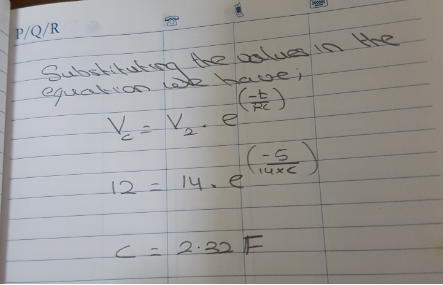 P/Q/R
Substituting the values in the
equation we have;
V_c = V_2 . e^(-t/RC)
12 = 14 . e^(-5/14×C)
C = 2.32 F